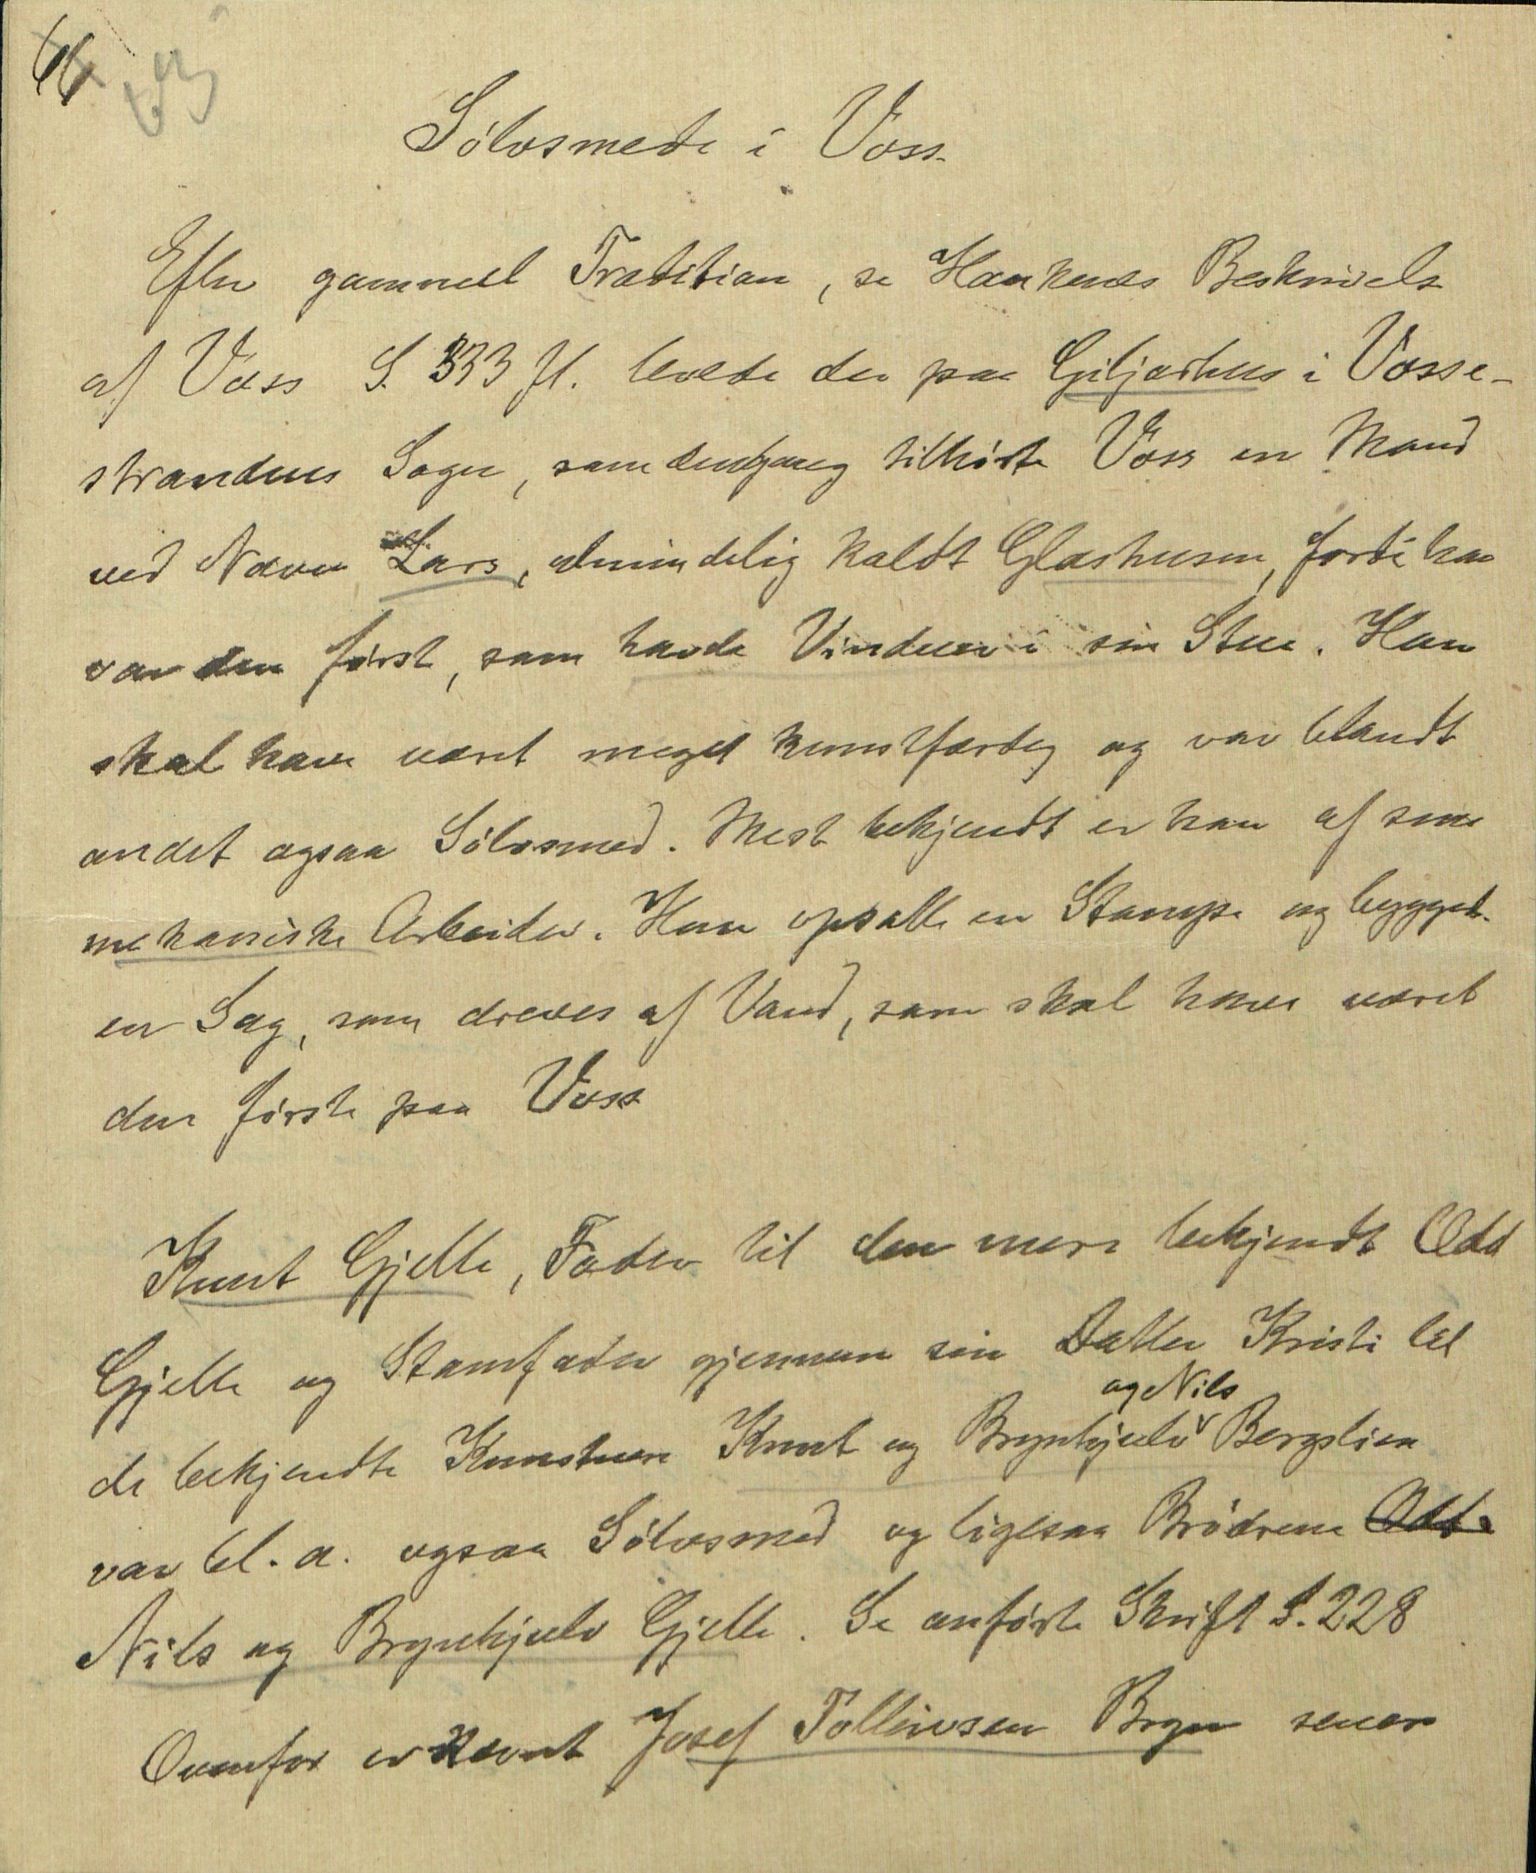 66
63
Sølvsmede i Voss.
Efter gammel Tradition, se Haukenæs Beskrivelse
af Voss S. 333 ff. levede der paa Giljarhus i Vosse-
strandens Sogn, som dengang tilhørte Voss en Mand
ved Navn Lars, almindelig kaldt Glashusen, fordi han
var den først, som havde Vinduer i sin Stue. Han
skal have været meget kunstfærdig og var blandt
andet ogsaa Sølvsmed. Mest bekjendt er han af sine
mekaniske Arbeider. Han opsatte en Stampe og bygget
en Sag, som dreves af Vand, som skal have været
den første paa Voss
Knut Gjelle, Fader til den mere bekjendt Odd
Gjelle og Stamfader gjennem sin Datter Kristi til
og Nils
de bekjendte Kunstnere Knut og Brynhjulv Bergslien
var bl. a. ogsaa Sølvsmed og ligesaa Brødrene Odd
Nils og Brynhjulv Gjelle. Se anførte Skrift S. 228
Ovenfor er nævnt Josef Tollevsen Bryn senere